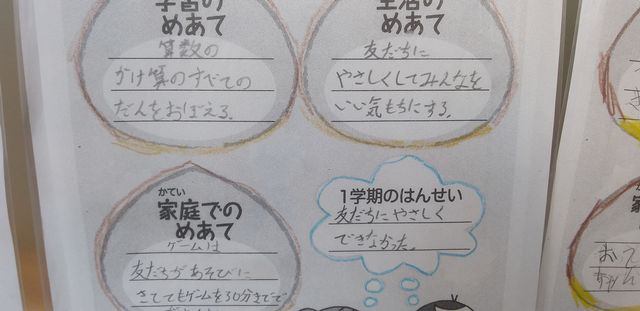 学習の
めあて
算数の
かけ算のすべての
だんをおぼえる。
生活の
めあて
友だちに
やさしくしてみんなを
いい気もちにする。
かてい
家庭での
めあて
ゲームは
友だちがあそびに
きててもゲームを30分までで
1学期のはんせい
友だちにやさしく
できなかった。